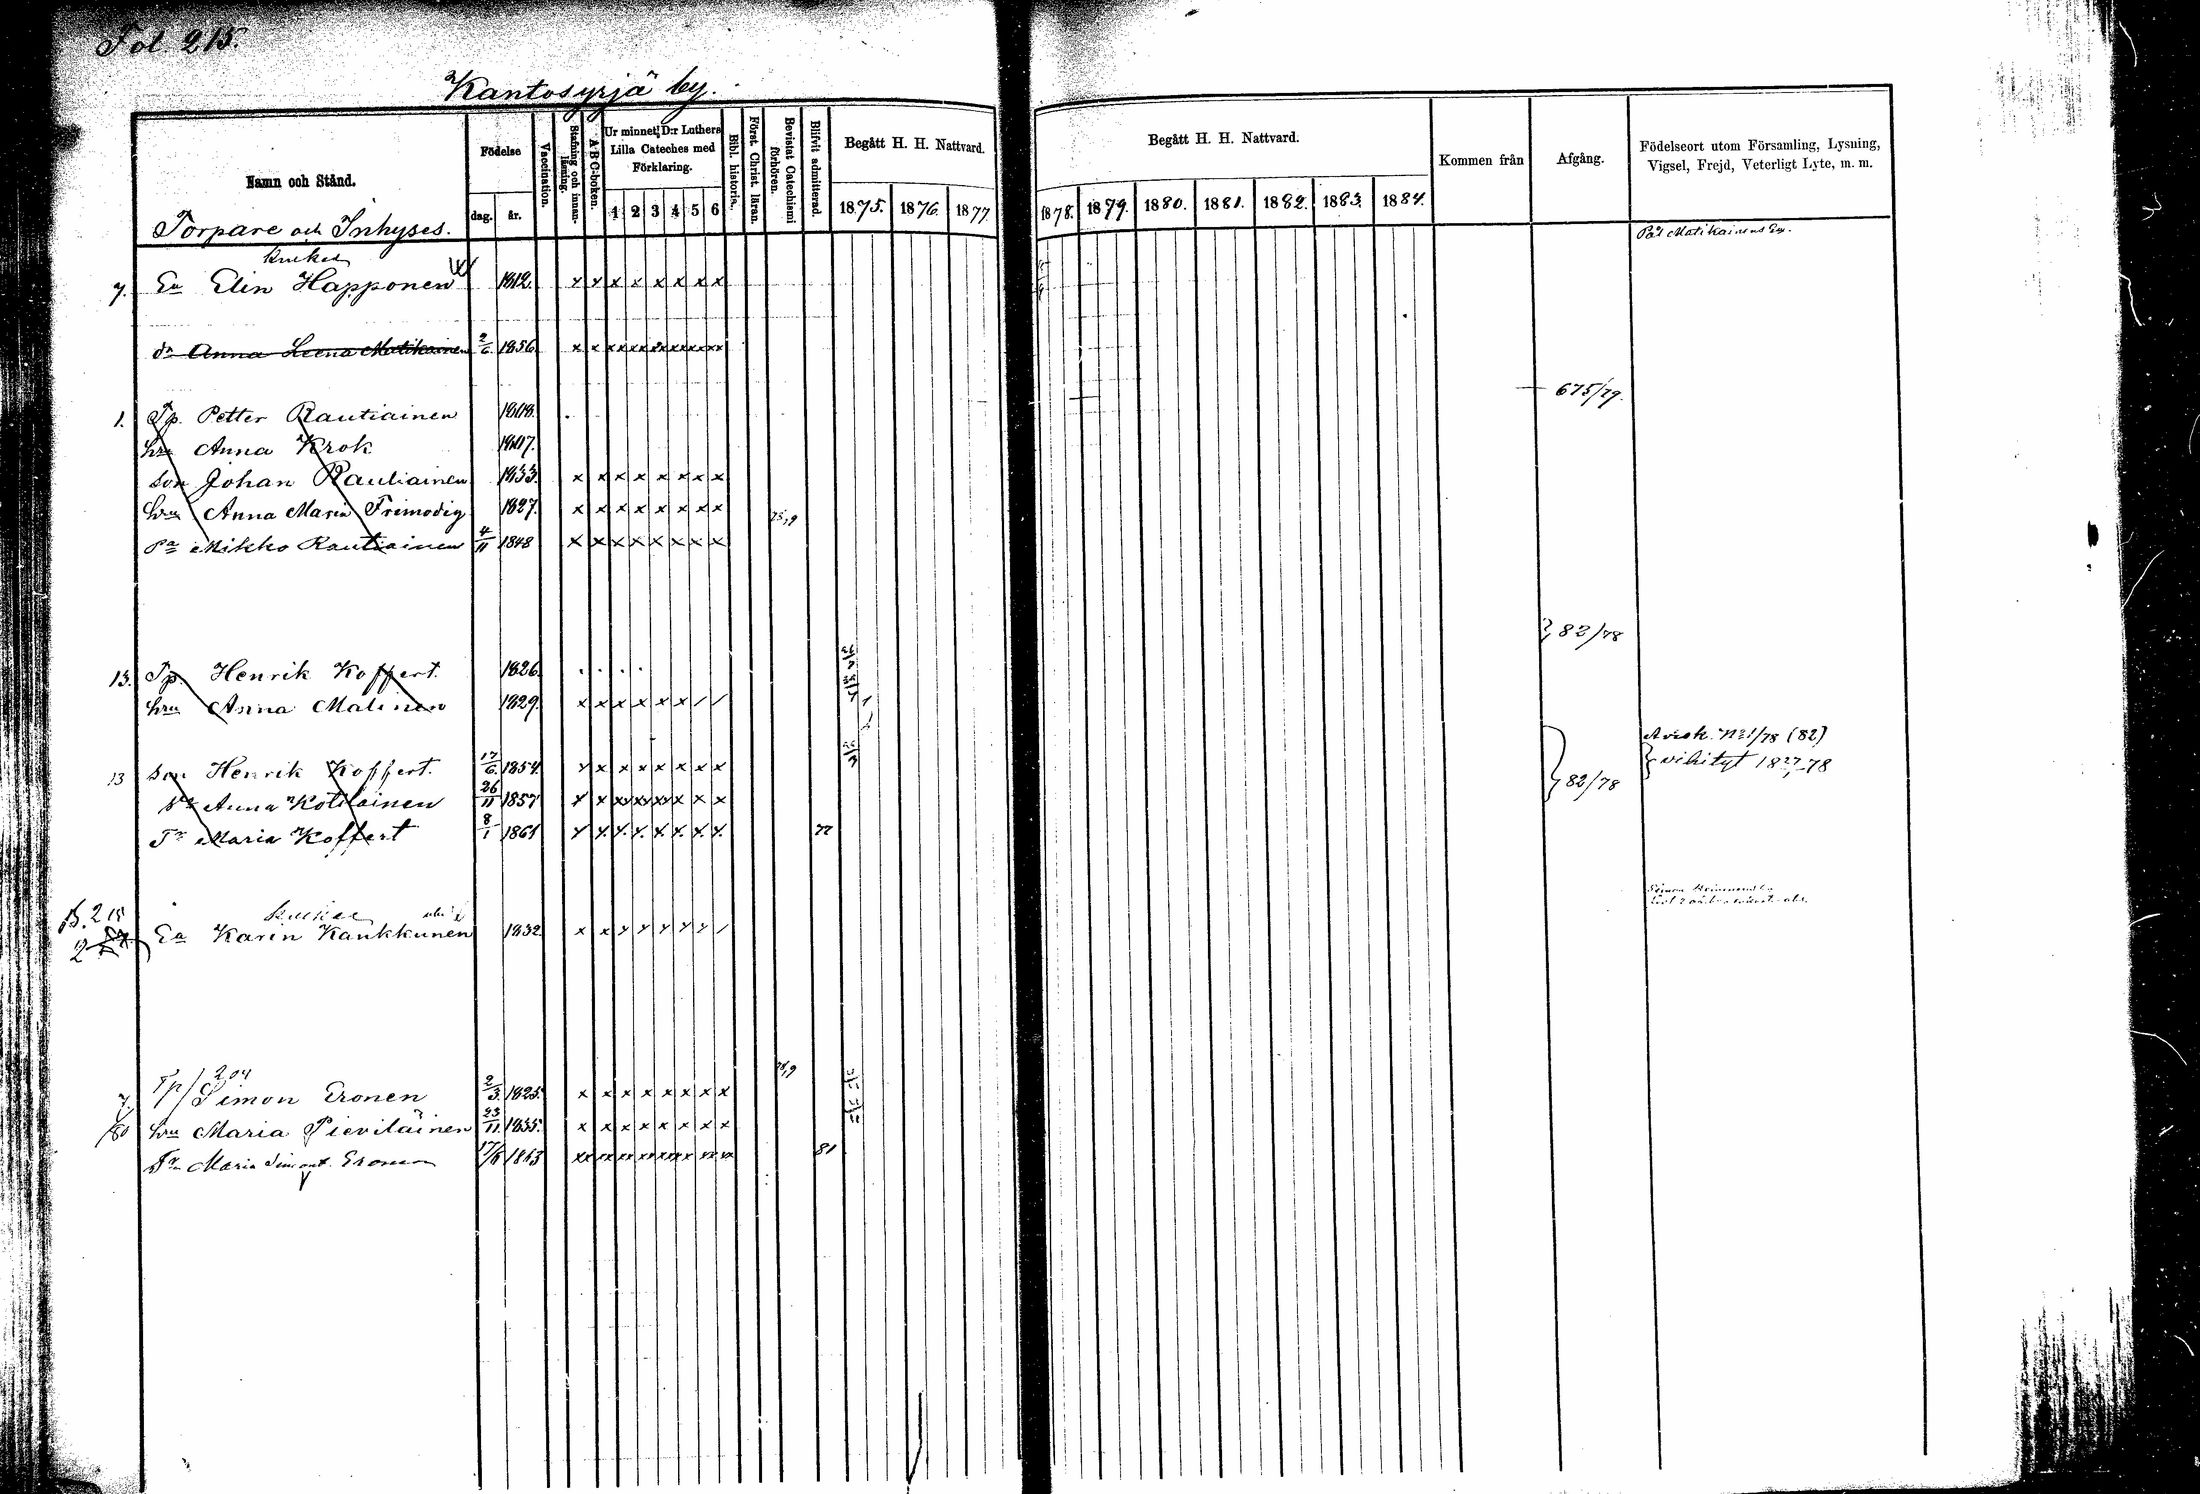 Fol 215.
Kantosyrjä by.
Namn och Stånd.
Födelse
dag.
år.
Vaccination.
Stafning och innanläsning.
A B C-boken.
Ur minnet D:r Luthers
Lilla Cateches med
Förklaring.
1 2 3 4 5 6
Bibl. historie.
Först. Christ. läran.
Bevistat Catechismi förhören.
Blifvit admitterad.
Begått H. H. Nattvard.
1875. 1876. 1877
Begått H. H. Nattvard.
1878. 1879. 1880. 1881. 1882. 1883. 1884.
Kommen från
Afgång.
Födelseort utom Församling, Lysning,
Vigsel, Frejd, Veterligt Lyte, m. m.
Torpare och Inhyses.
7. Ea Elin Happonen 1812.
dr Anna Leena Matikainen 2/6 1856
675/79.
1. Tp. Petter Rautiainen 1808.
hru Anna Krok 1807.
son Johan Rautiainen 1833.
hru Anna Maria Frimodig 1827. 75,9
Mikko Rautiainen 4/11 1848
82/78
13. Tp. Henrik Koffert. 1826.
hru Anna Malinen 1829.
Avisk. No 1/78 (82)
13 son Henrik Koffert. 17/6. 1854. vihityt 18 27/1 78
Anna Kotilainen 26/11 1857 82/78
Tr Maria Koffert 8/1 1861 77
Ea Karin Kaukkunen 1832.
204
7. Tp/ Simon Eronen 2/3. 1825.
/80 hru Maria Pieviläinen 23/11. 1835.
Tr Maria Eronen 17/6 1863 81